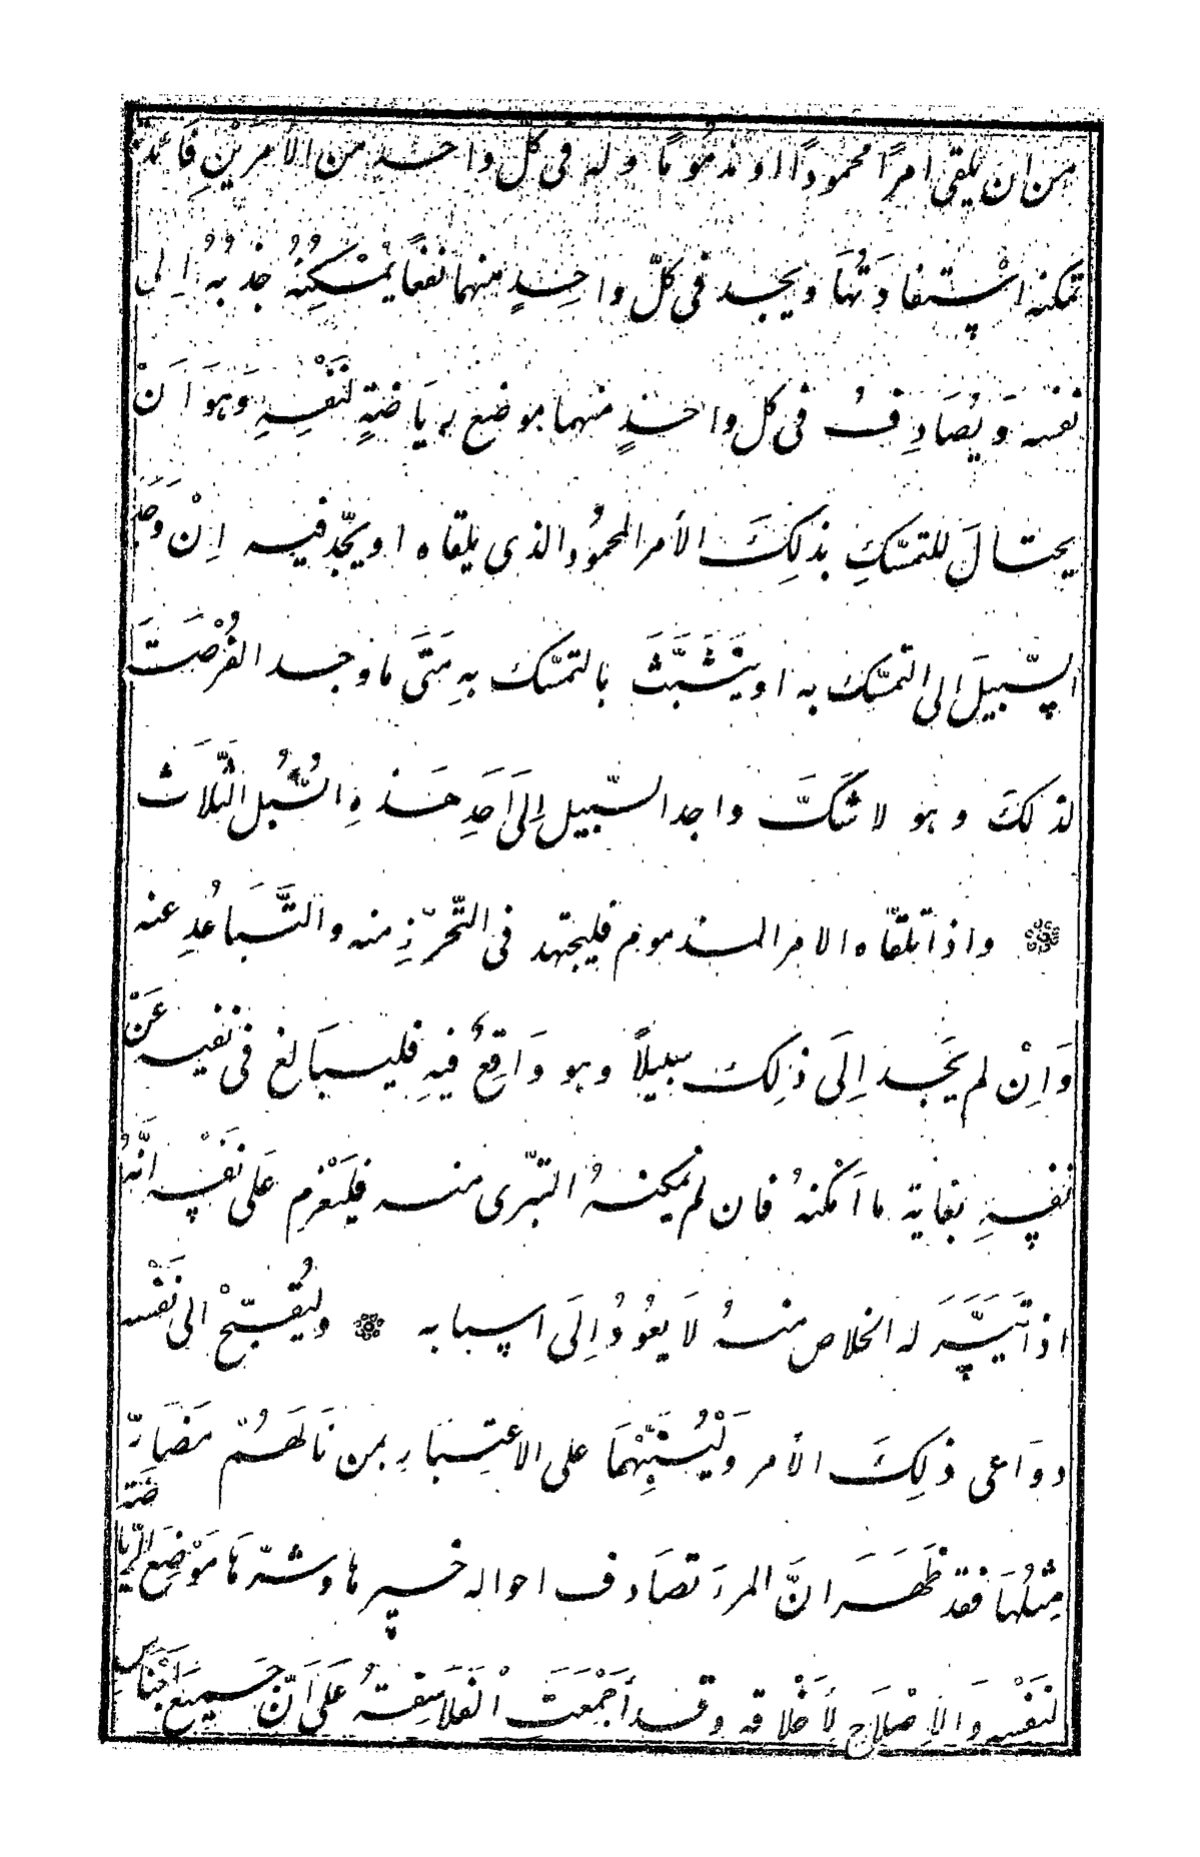 من ان يلقى امرًا محمودًا او مذمُومًا وله فى كلّ واحد من الأمرَيْنِ فَائدة
تمكنه اسْتفادَتُهَا ويجد فى كلّ واحِدٍ منهما نفعًا يُمْكِنُهُ جذبُهُ اِلى
نفسه وَيُصَادِفُ فى كل واحدٍ منهما موضع رِيَاضَةٍ لنَفْسِهِ وَهوَ اَنْ
يحتالَ للتمسّكِ بذلِكَ الأمر المحمُود الذى يلقاه او يجّد فيه اِنْ وَجَدَ
السّبيلَ الى التمسّك به او يتَشَبَّثَ بالتمسّك بهِ مَتَى ما وجد الفُرْصَتَ
لذلكَ وهو لا شكَّ واجد السّبيل اِلَى اَحَدِ هَذهِ السُّبُل الثّلَاث
واذا تلقّاه الامر المذموم فليجتهد فى التّحَرّزِ منه والتَّبَاعُدِ عنه
وَاِنْ لم يَجد اِلَى ذلِكَ سبيلًا وهو وَاقِعٌ فيهِ فليبَالغ فى نفيه عَنْ
نفسِهِ بغاية ما اَمْكنهُ فان لم يمكنهُ التبّرى منه فليَعْزِم عَلى نَفْسه اَنَّهُ
اذا تَيَسَّرَ له الخلاص منهُ لَا يعُودُ اِلَى اسبابه وليُقبّحْ الى نَفْسه
دوَاعى ذلِكَ الأمر وَلْيُنَبِّهْهَا على الاعتِبَارِ بمن نَالَهُمْ مَضَارّ
مِثلُهَا فقد ظَهَرَ انَّ المرءَ تصَادف احواله خيرها وشرّهَا مَوْضِع الرّيَاضَة
لنَفْسه وَالاِصْلَاحِ لأَخْلاقه وقد أجْمَعَت الْفَلَاسِفةُ عَلَى اَنّ جَميعَ اَجْنَاسِ